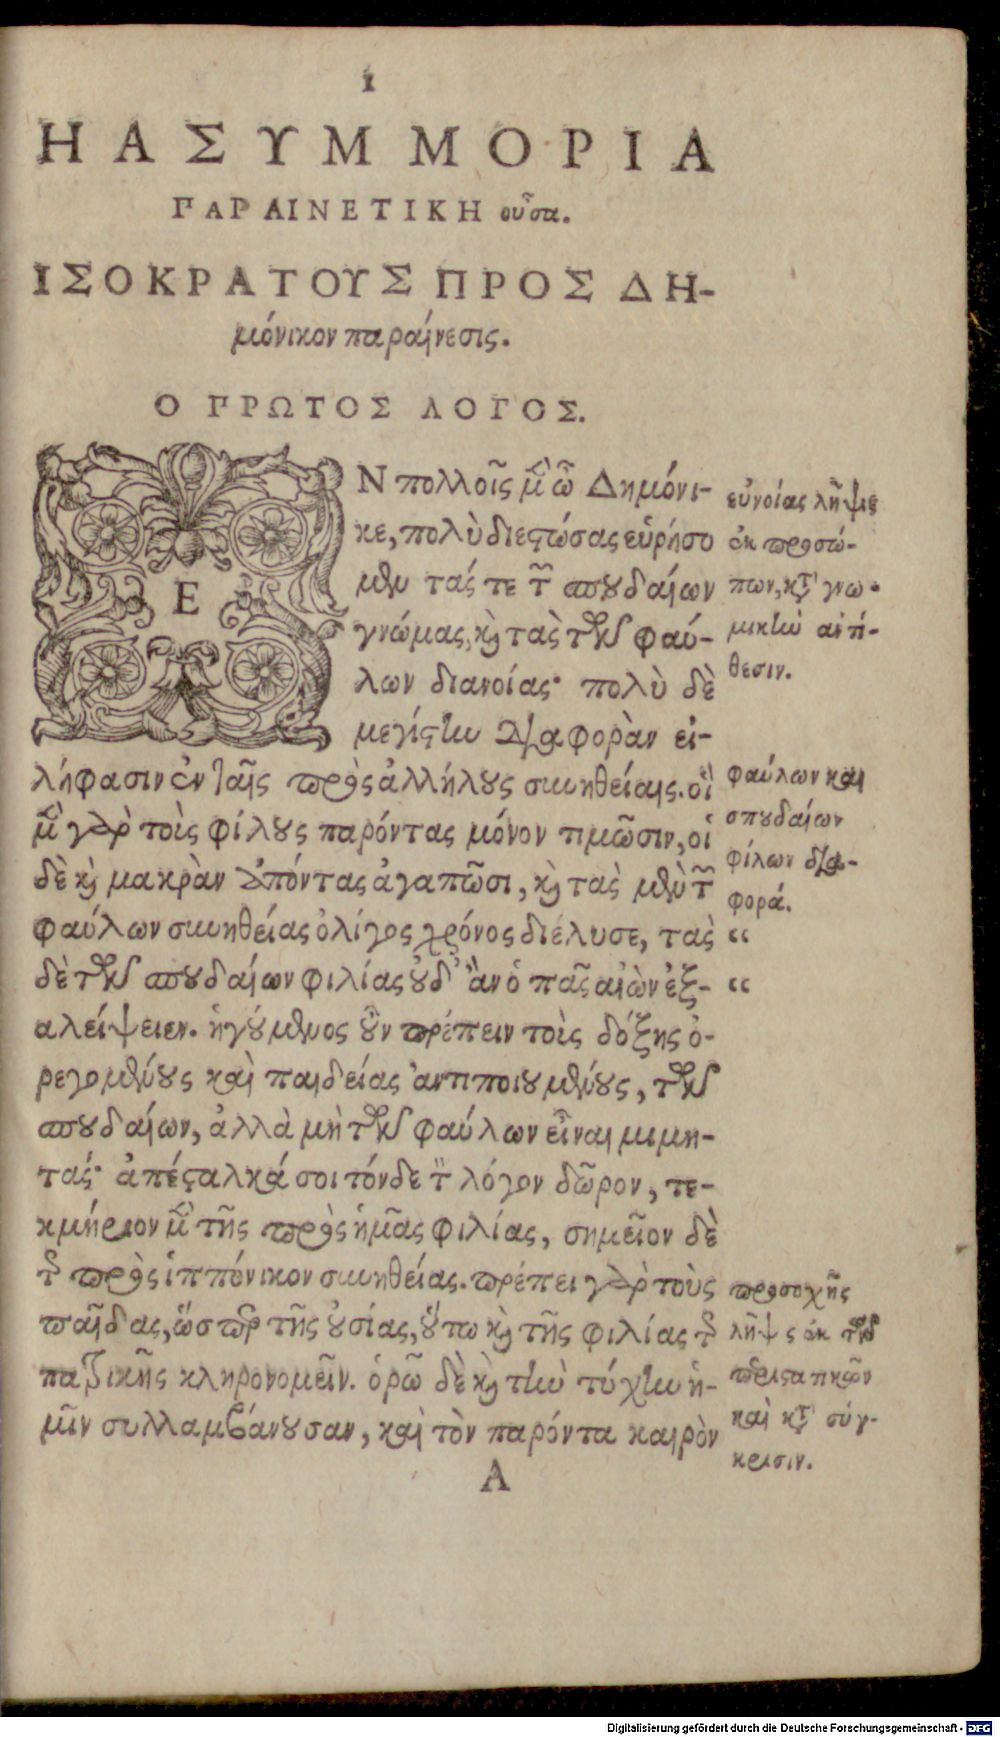 1
Η Α ΣΥΜΜΟΡΙΑ
ΠΑΡΑΙΝΕΤΙΚΗ οὖσα.
ΙΣΟΚΡΑΤΟΥΣ ΠΡΟΣ ΔΗ-
μόνικον παραίνεσις.
Ο ΠΡΩΤΟΣ ΛΟΓΟΣ.
ΕΝ πολλοῖς μὲν ὦ Δημόνι-
κε, πολὺ διεστώσας εὑρήσο
μεν τάς τε τῶν σπουδαίων
γνώμας, καὶ τὰς τῶν φαύ-
λων διανοίας· πολὺ δὲ
μεγίστην διαφορὰν εἰ-
λήφασιν ἐν ταῖς πρὸς ἀλλήλους συνηθείαις. οἱ
μὲν γὰρ τοὺς φίλους παρόντας μόνον τιμῶσιν, οἱ
δὲ καὶ μακρὰν ἀπόντας ἀγαπῶσι, καὶ τὰς μὲν τῶν
φαύλων συνηθείας ὀλίγος χρόνος διέλυσε, τὰς
δὲ τῶν σπουδαίων φιλίας οὐδ' ἂν ὁ πᾶς αἰὼν ἐξ-
αλείψειεν. ἡγούμενος οὖν πρέπειν τοὺς δόξης ὀ-
ρεγομένους καὶ παιδείας ἀντιποιουμένους, τῶν
σπουδαίων, ἀλλὰ μὴ τῶν φαύλων εἶναι μιμη-
τάς· ἀπέσταλκά σοι τόνδε τὸν λόγον δῶρον, τε-
κμήριον μὲν τῆς πρὸς ἡμᾶς φιλίας, σημεῖον δὲ
τῆς πρὸς ἱππόνικον συνηθείας. πρέπει γὰρ τοὺς
παῖδας, ὥσπερ τῆς οὐσίας, οὕτω καὶ τῆς φιλίας τῆς
πατρικῆς κληρονομεῖν. ὁρῶ δὲ καὶ τὴν τύχην ἡ-
μῖν συλλαμβάνουσαν, καὶ τὸν παρόντα καιρὸν
Α
εὐνοίας λῆψις
ἐκ προσώ-
πων, κατὰ γνω-
μικὴν ἀντί-
θεσιν.
φαύλων καὶ
σπουδαίων
φίλων δια-
φορά.
“
“
προσοχῆς
λῆψις ἐκ τῶν
περιστατικῶν
καὶ κατὰ σύγ-
κρισιν.
Digitalisierung gefördert durch die Deutsche Forschungsgemeinschaft - DFG